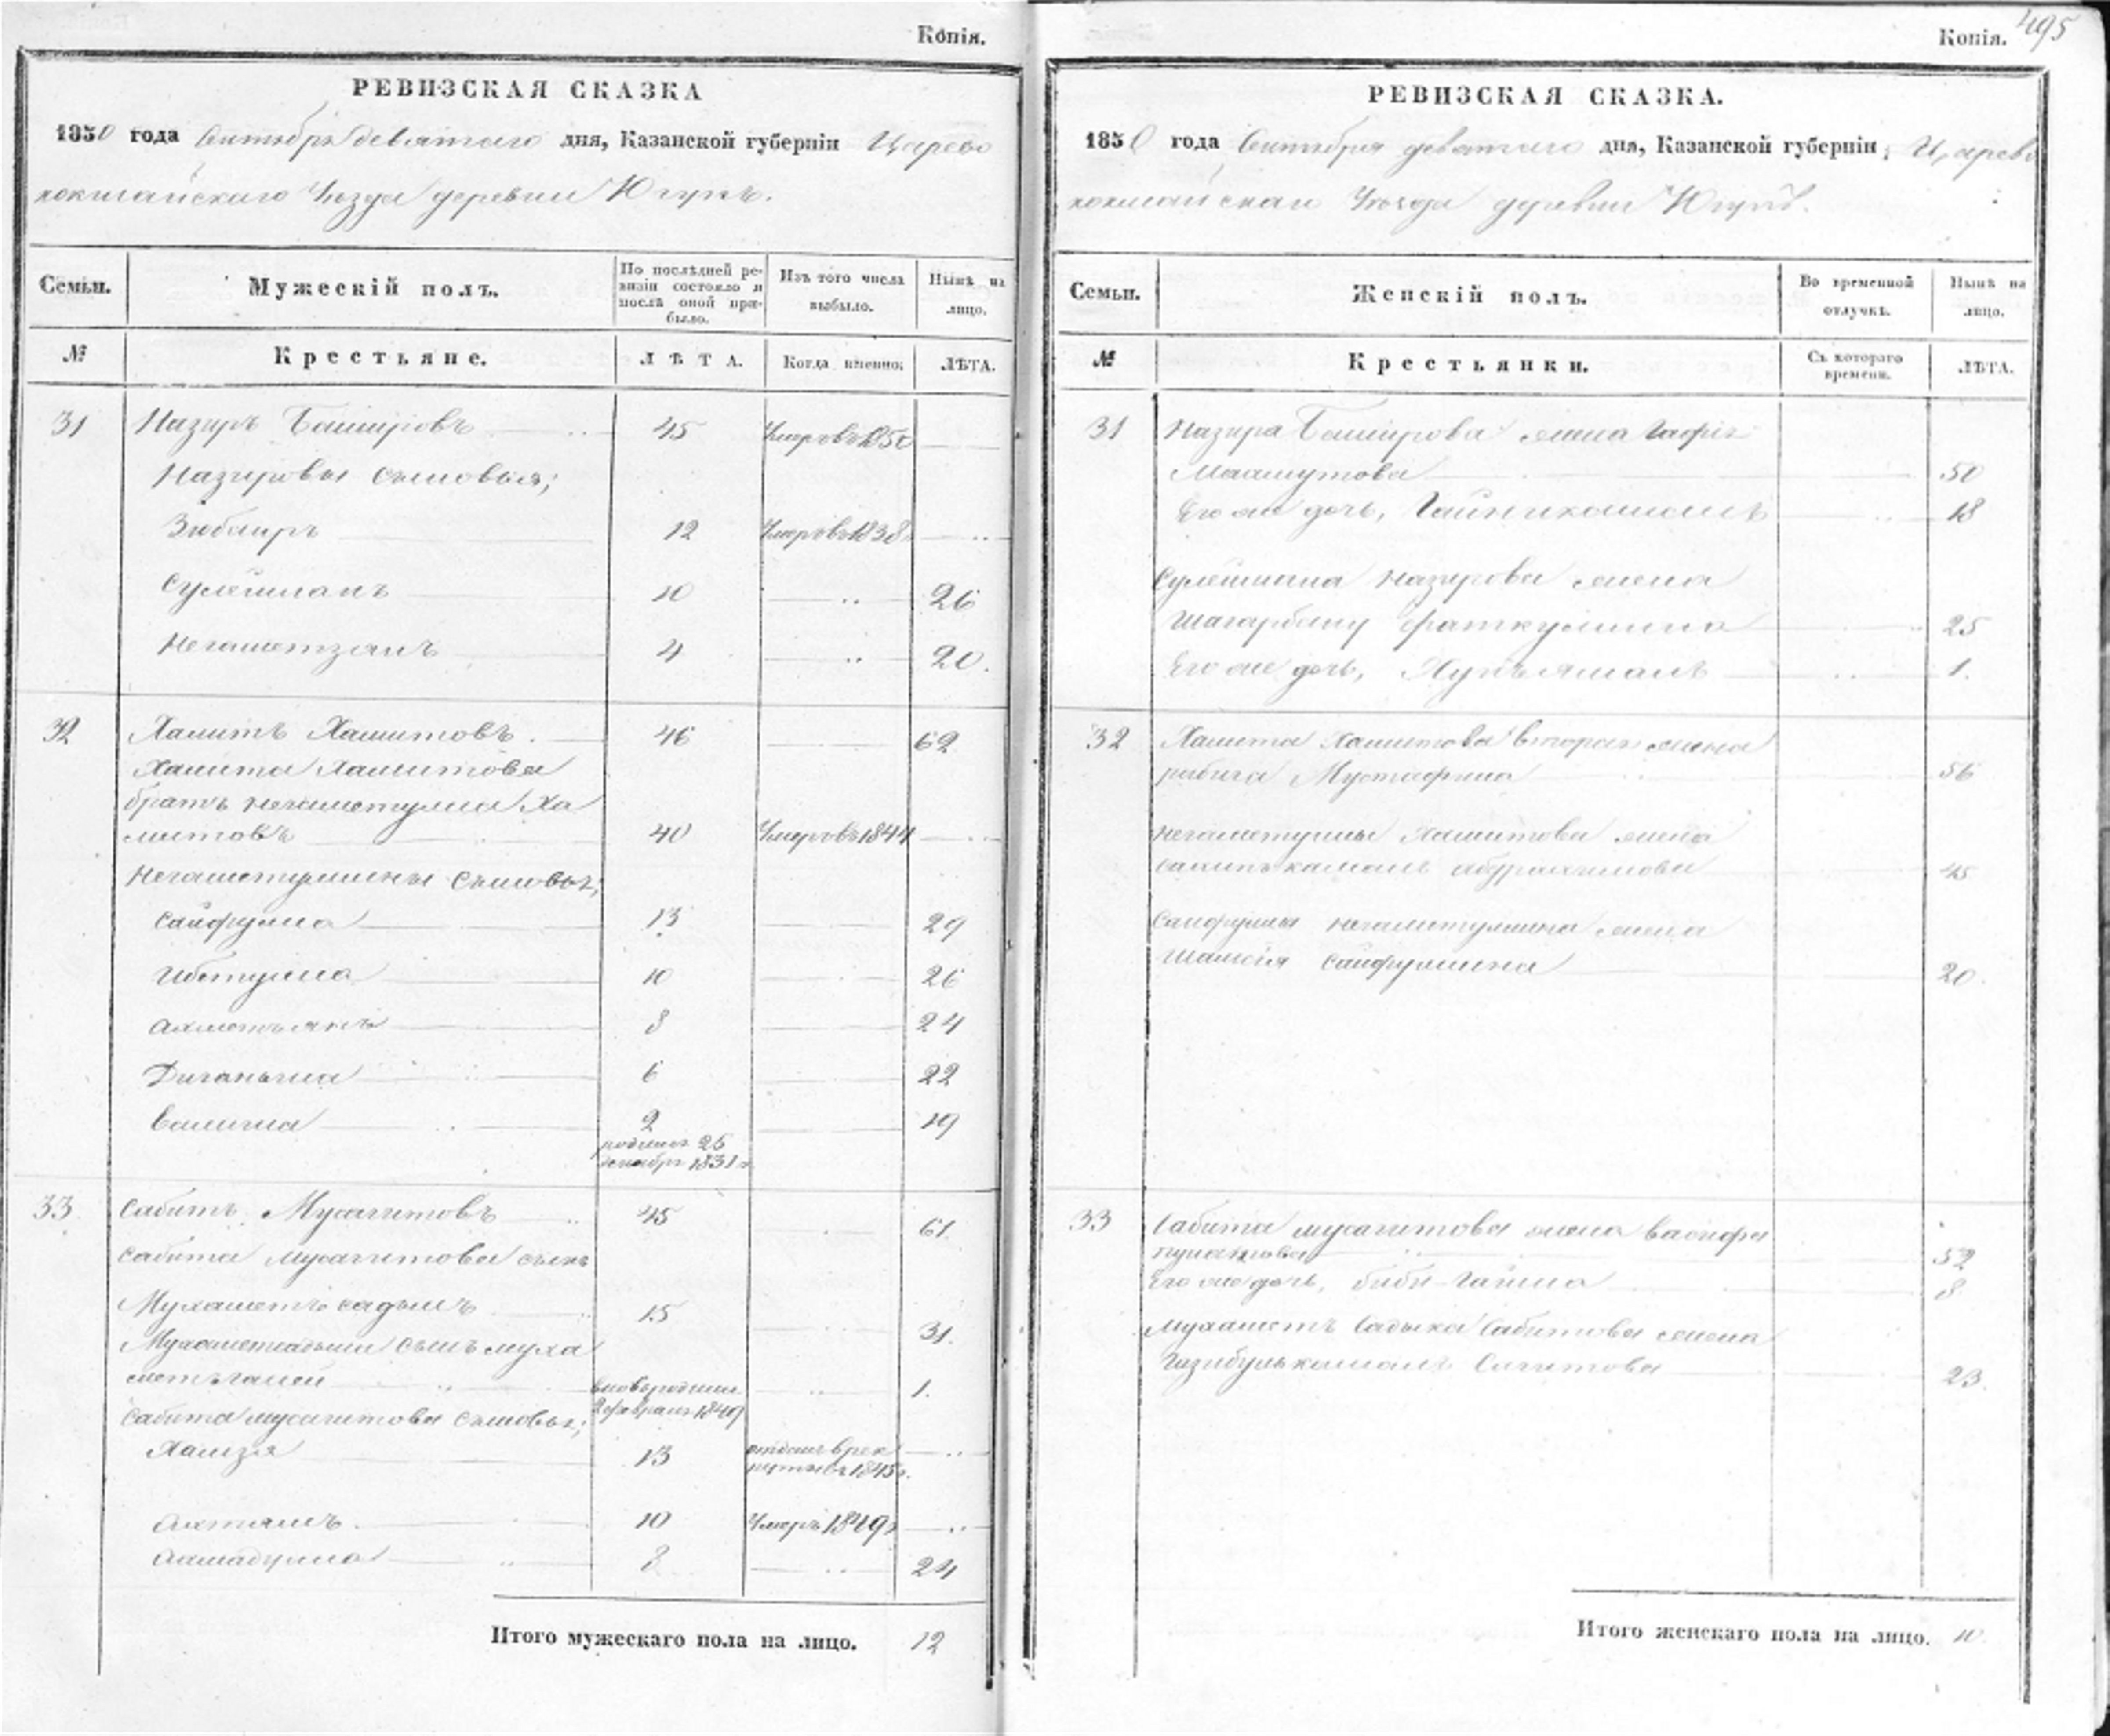 Копія.
РЕВИЗСКАЯ СКАЗКА
1850 года Сентября девятаго дня, Казанской губерніи Царево
кокшайскаго Уѣзда деревни
Семьи.
Мужескій полъ.
По послѣдней ре-
визіи состояло и
послѣ оной при-
было.
Изъ того числа
выбыло.
Нынѣ на
лицо.
№
Крестьяне.
ЛѢТА.
Когда именно.
ЛѢТА.
31 Назиръ Башировъ 45 Умеръ въ 1850
Назировы сыновья;
Зюбаиръ 12 Умеръ въ 1838
Сулейманъ 10 26
Негаметзянъ 4 20.
32 Хамитъ Хамитовъ. 46 62
Хамита Хамитова
братъ Негаметулла Ха
митовъ 40 Умеръ въ 1844
Негаметуллины сыновья;
Сайфулла 13 29
Ибетулла 10 26
Ахметьянъ 8 24
6 22
Валилла 2 19
родился 26
декабря 1831 г.
33 Сабитъ Мусагитовъ 45 61.
Сабита Мусагитова сынъ
Мухаметъ садыкъ 15 31.
Мухаметсадыка сынъ Муха
метъ галей вновь родился 1.
2 февраля 1849
Сабита Мусагитова сыновья;
Хамзя 13 отданъ в рек
руты въ 1845 г.
Ахтямъ. 10 Умеръ 1849
Ахмадулла 8 24
Итого мужескаго пола на лицо. 12
Копія. 495
РЕВИЗСКАЯ СКАЗКА.
1850 года Сентября девятаго дня, Казанской губерніи, Царево
кокшайскаго Уѣзда деревни
Семьи.
Женскій полъ.
Во временной
отлучкѣ.
Нынѣ на
лицо.
№
Крестьянки.
Съ котораго
времени.
ЛѢТА.
31 Назира Баширова жена
50
Его же дочь, 18
Сулеймана Назирова жена
Шагарбану Фаткуллина 25
Его же дочь, 1.
32 Хамита Хамитова вторая жена
Рабига Мустафина 56
Негаметуллы Хамитова жена
45
Сайфуллы Негаметуллина жена
Шамсія Сайфуллина 20.
33 Сабита Мусагитова жена Васифа
52
Его же дочь, Биби-Гайша 8
Мухаметъ Садыка Сабитова жена
Сагитова 23.
Итого женскаго пола на лицо. 10.